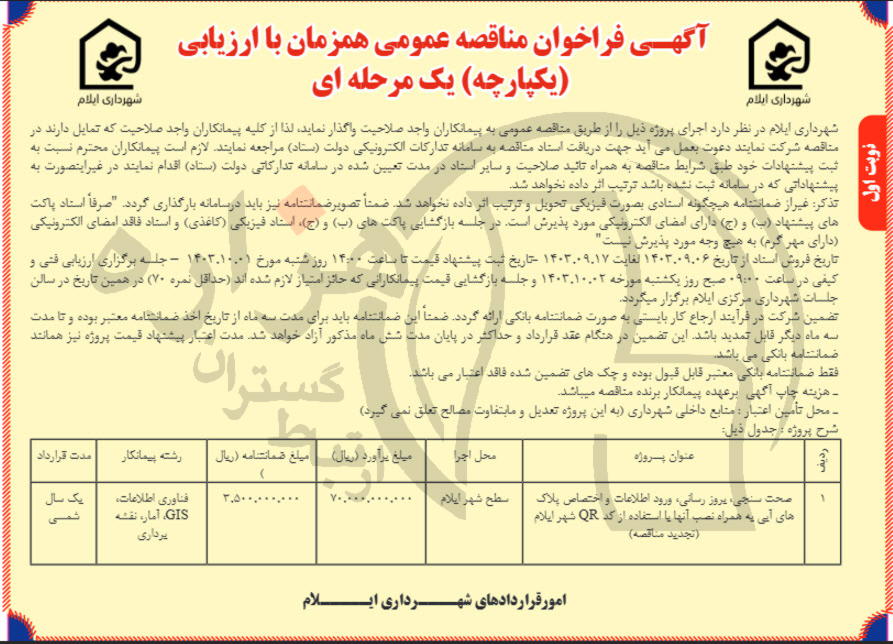 آگهـــی فراخوان مناقصه عمومی همزمان با ارزیابی
(یکپارچه) یک مرحله ای
شهرداری ایلام
شهرداری ایلام
نوبت اول
شهرداری ایلام در نظر دارد اجرای پروژه ذیل را از طریق مناقصه عمومی به پیمانکاران واجد صلاحیت واگذار نماید، لذا از کلیه پیمانکاران واجد صلاحیت که تمایل دارند در
مناقصه شرکت نمایند دعوت بعمل می آید جهت دریافت اسناد مناقصه به سامانه تدارکات الکترونیکی دولت (ستاد) مراجعه نمایند. لازم است پیمانکاران محترم نسبت به
ثبت پیشنهادات خود طبق شرایط مناقصه به همراه تائید صلاحیت و سایر اسناد در مدت تعیین شده در سامانه تدارکاتی دولت (ستاد) اقدام نمایند در غیراینصورت به
پیشنهاداتی که در سامانه ثبت نشده باشد ترتیب اثر داده نخواهد شد.
تذکر: غیراز ضمانتنامه هیچگونه اسنادی بصورت فیزیکی تحویل و ترتیب اثر داده نخواهد شد. ضمناً تصویرضمانتنامه نیز باید درسامانه بارگذاری گردد. "صرفاً اسناد پاکت
های پیشنهاد (ب) و (ج) دارای امضای الکترونیکی مورد پذیرش است. در جلسه بازگشایی پاکت های (ب) و (ج)، اسناد فیزیکی (کاغذی) و اسناد فاقد امضای الکترونیکی
(دارای مهر گرم) به هیچ وجه مورد پذیرش نیست"
تاریخ فروش اسناد از تاریخ ۱۴۰۳.۰۹.۰۶ لغایت ۱۴۰۳.۰۹.۱۷ -تاریخ ثبت پیشنهاد قیمت تا ساعت ۱۴:۰۰ روز شنبه مورخ ۱۴۰۳.۱۰.۰۱ – جلسه برگزاری ارزیابی فنی و
کیفی در ساعت ۰۹:۰۰ صبح روز یکشنبه مورخه ۱۴۰۳.۱۰.۰۲ و جلسه بازگشایی قیمت پیمانکارانی که حائز امتیاز لازم شده اند (حداقل نمره ۷۰) در همین تاریخ در سالن
جلسات شهرداری مرکزی ایلام برگزار میگردد.
تضمین شرکت در فرآیند ارجاع کار بایستی به صورت ضمانتنامه بانکی ارائه گردد. ضمناً این ضمانتنامه باید برای مدت سه ماه از تاریخ اخذ ضمانتنامه معتبر بوده و تا مدت
سه ماه دیگر قابل تمدید باشد. این تضمین در هنگام عقد قرارداد و حداکثر در پایان مدت شش ماه مذکور آزاد خواهد شد. مدت اعتبار پیشنهاد قیمت پروژه نیز همانند
ضمانتنامه بانکی می باشد.
فقط ضمانتنامه بانکی معتبر قابل قبول بوده و چک های تضمین شده فاقد اعتبار می باشد.
ـ هزینه چاپ آگهی برعهده پیمانکار برنده مناقصه میباشد.
ـ محل تأمین اعتبار : منابع داخلی شهرداری (به این پروژه تعدیل و مابتفاوت مصالح تعلق نمی گیرد)
شرح پروژه : جدول ذیل:
ردیف عنوان پــروژه محل اجرا مبلغ برآورد (ریال) مبلغ ضمانتنامه (ریال رشته پیمانکار مدت قرارداد
)
۱ صحت سنجی، بروز رسانی، ورود اطلاعات و اختصاص پلاک سطح شهر ایلام ۷۰.۰۰۰.۰۰۰.۰۰۰ ۳.۵۰۰.۰۰۰.۰۰۰ فناوری اطلاعات، یک سال
های آبی به همراه نصب آنها با استفاده از کد QR شهر ایلام GIS، آمار، نقشه شمســی
(تجدید مناقصه) برداری
امورقراردادهای شهــــــرداری ایــــــــلام
هزاره
گستران
ارتباط